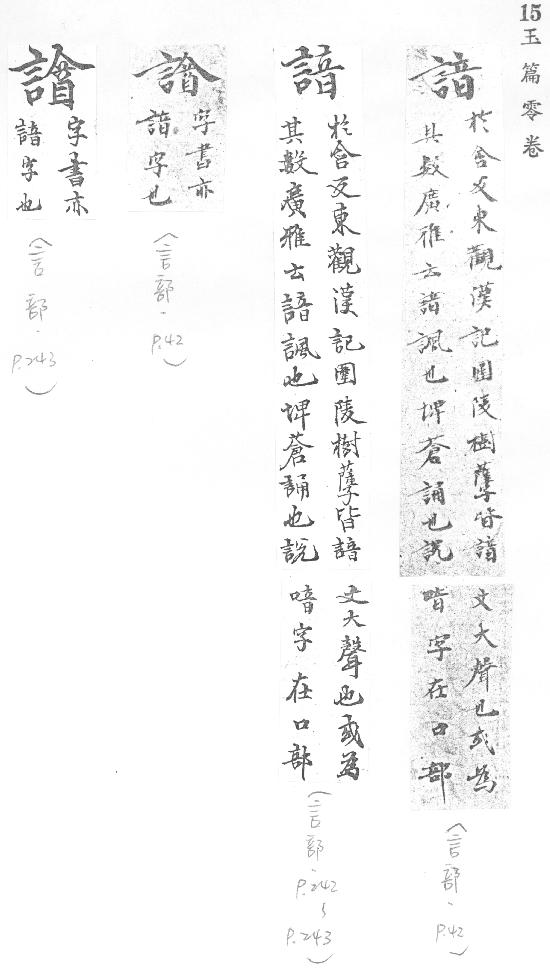 15
玉篇零卷
諳
於含反東觀漢記園陵樹蘖皆諳
其數廣雅云諳諷也埤蒼誦也說
文大聲也或為
喑字在口部
(言部,P.42)
諳
於含反東觀漢記園陵樹蘖皆諳
其數廣雅云諳諷也埤蒼誦也說
文大聲也或為
喑字在口部
(言部,P.242~P.243)
字書亦
諳字也
(言部,P.42)
字書亦
諳字也
(言部,P.243)